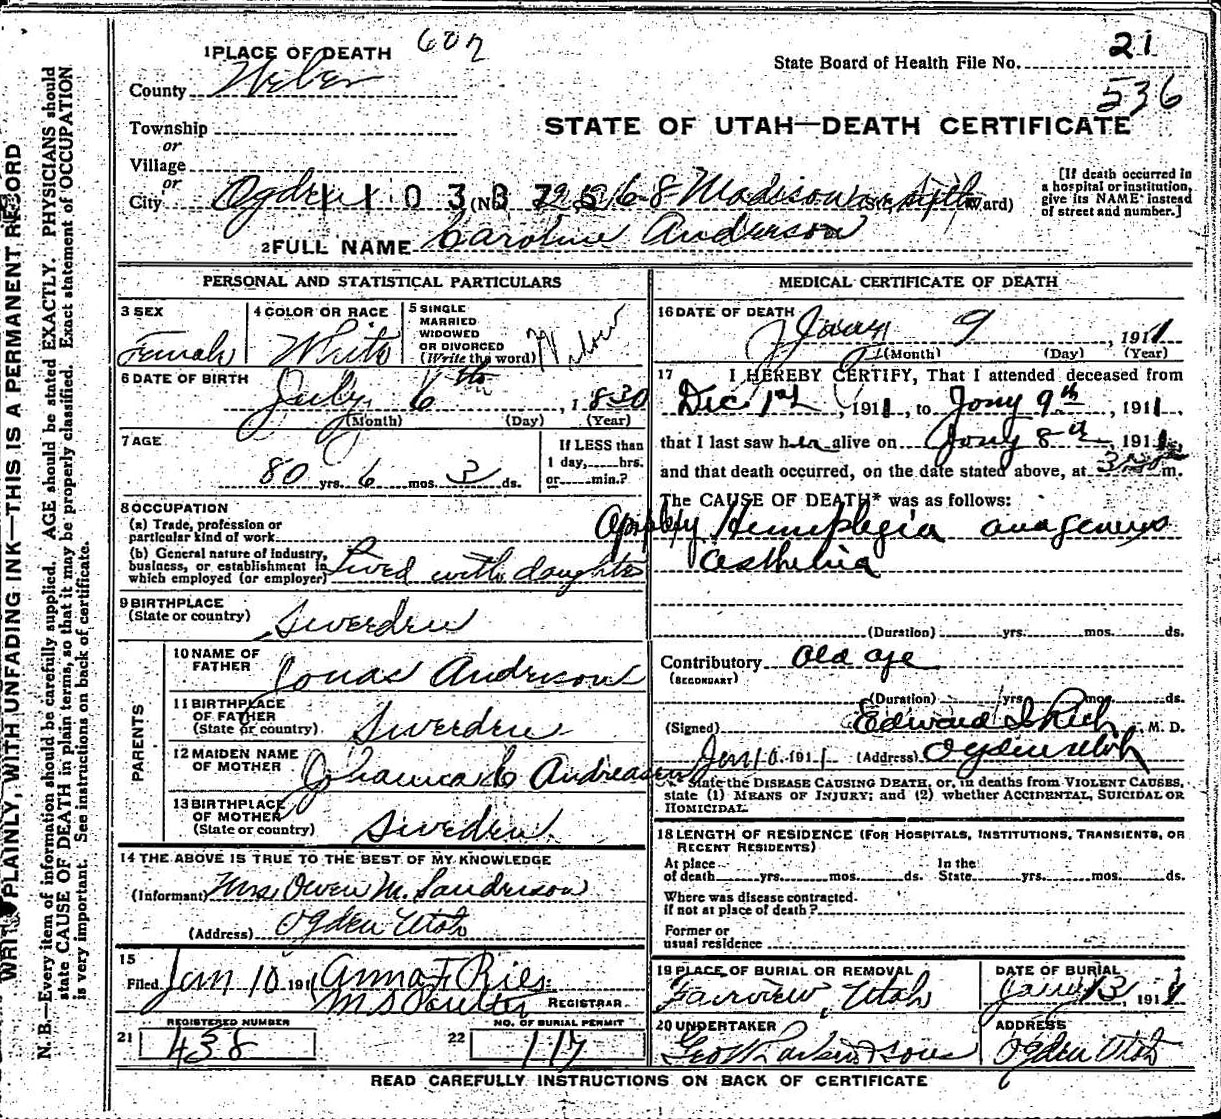 WRITE PLAINLY, WITH UNFADING INK—THIS IS A PERMANENT RECORD
N. B.—Every item of information should be carefully supplied. AGE should be stated EXACTLY. PHYSICIANS should
state CAUSE OF DEATH in plain terms, so that it may be properly classified. Exact statement of OCCUPATION
is very important. See instructions on back of certificate.
1 PLACE OF DEATH
County Weber
Township
or
Village
or
City Ogden (No. 2268 Madison
State Board of Health File No. 21
536
STATE OF UTAH—DEATH CERTIFICATE
[If death occurred in
a hospital or institution,
give its NAME instead
of street and number.]
Ward)
2 FULL NAME Caroline Anderson
PERSONAL AND STATISTICAL PARTICULARS
3 SEX
Female
4 COLOR OR RACE
White
5 SINGLE
MARRIED
WIDOWED
OR DIVORCED
(Write the word) Widow
6 DATE OF BIRTH
July 6th, 1830
(Month) (Day) (Year)
7 AGE
80 yrs. 6 mos. 3 ds.
If LESS than
1 day, hrs.
or min.?
8 OCCUPATION
(a) Trade, profession or
particular kind of work
(b) General nature of industry,
business, or establishment in
which employed (or employer) Lived with daughter
9 BIRTHPLACE
(State or country) Swerdren
PARENTS
10 NAME OF
FATHER Jonas Anderson
11 BIRTHPLACE
OF FATHER
(State or country) Swerdren
12 MAIDEN NAME
OF MOTHER Johanna C Andreasen
13 BIRTHPLACE
OF MOTHER
(State or country) Swerdren
14 THE ABOVE IS TRUE TO THE BEST OF MY KNOWLEDGE
(Informant) Mrs Owen M. Sanderson
(Address) Ogden Utah
15
Filed Jan 10 191 Anna F. Ries
REGISTRAR.
21 REGISTERED NUMBER
438
22 NO. OF BURIAL PERMIT
117
MEDICAL CERTIFICATE OF DEATH
16 DATE OF DEATH
Jany 9, 1911
(Month) (Day) (Year)
17 I HEREBY CERTIFY, That I attended deceased from
Dec 1st, 1911, to Jany 9th, 1911,
that I last saw her alive on Jany 8th, 1911,
and that death occurred, on the date stated above, at m.
The CAUSE OF DEATH* was as follows:
Apoplexy Hemiplegia
asthenia
(Duration) yrs. mos. ds.
Contributory Old age
(SECONDARY)
(Duration) yrs. mos. ds.
(Signed) Edward I Rich, M. D.
Jan 10, 1911 (Address) Ogden Utah
* State the DISEASE CAUSING DEATH, or, in deaths from VIOLENT CAUSES,
state (1) MEANS OF INJURY; and (2) whether ACCIDENTAL, SUICIDAL OR
HOMICIDAL.
18 LENGTH OF RESIDENCE (FOR HOSPITALS, INSTITUTIONS, TRANSIENTS, OR
RECENT RESIDENTS)
At place
of death yrs. mos. ds.
In the
State yrs. mos. ds.
Where was disease contracted
if not at place of death?
Former or
usual residence
19 PLACE OF BURIAL OR REMOVAL
Fairview, Utah
DATE OF BURIAL
Jany 13, 1911
20 UNDERTAKER
Geo W Larkin & Sons
ADDRESS
Ogden Utah
READ CAREFULLY INSTRUCTIONS ON BACK OF CERTIFICATE